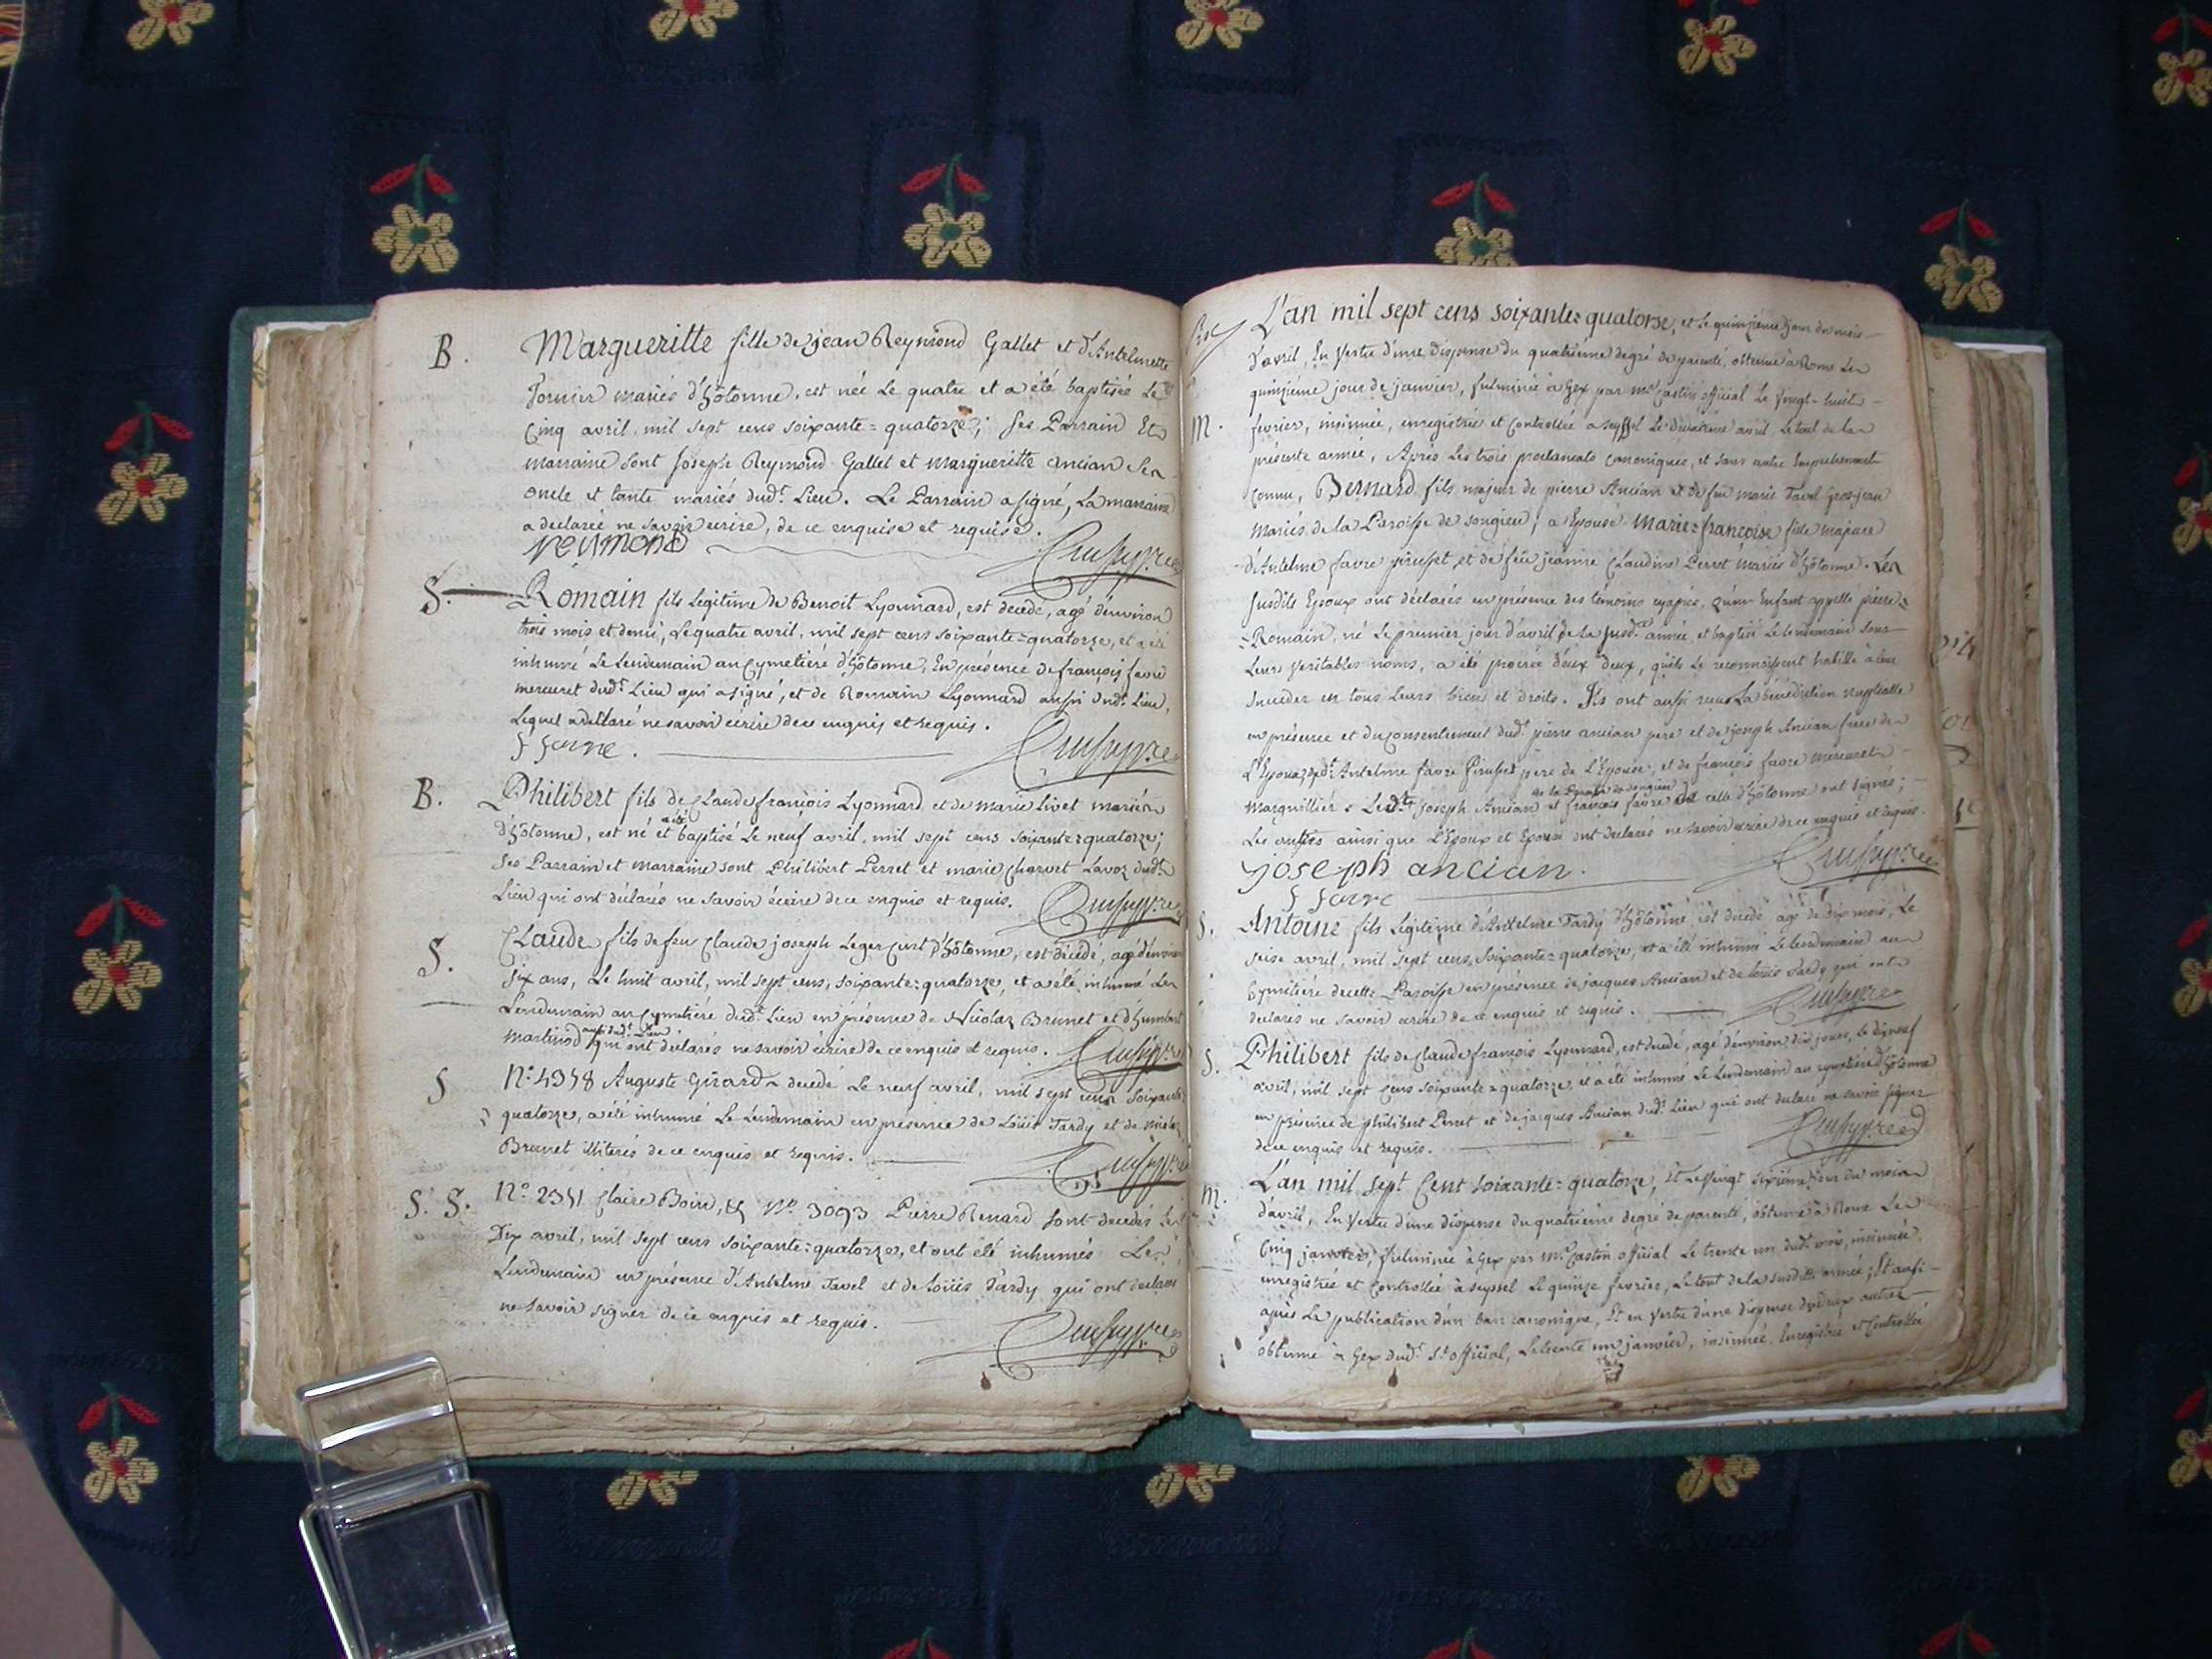 B.
Margueritte fille de jean Reymond Gallet et d'Antelmette
fornier mariés d'hôtonne, est née Le quatre et a été baptisée Le
Cinq avril, mil sept cens soixante=quatorze; ses Parrain Et
marraine sont joseph Reymond Gallet et margueritte ancian Ses
oncle et tante mariés dud.t Lieu. Le Parrain a signé, La marraine
a declarée ne savoir ecrire, de ce enquise et requise.
reymond
S.
Romain fils Legitime de Benoit Lyonnard, est decedé, agé d'environ
trois mois et demi, Le quatre avril, mil sept cens soixante=quatorze, et a été
inhumé Le Lendemain au Cymetiére d'hôtonne, En présence de françois favre
mercuret dud.t Lieu qui a signé, et de Romain Lyonnard aussi dud.t Lieu,
Lequel a déclaré ne savoir ecrire de ce enquis et requis.
f favre.
B.
Philibert fils de Claude françois Lyonnard et de marie Livet mariés
d'hôtonne, est né et a été baptisé Le neuf avril, mil sept cens soixante=quatorze;
Ses Parrain et marraine sont Philibert Perret et marie Charvet Lavoz dud.t
Lieu qui ont déclarés ne savoir écrire de ce enquis et requis.
S.
CLaude fils de feu Claude joseph Leger Curt d'hôtonne, est décédé, agé d'environ
six ans, Le huit avril, mil sept cens, soixante=quatorze, et a été inhumé Le
Lendemain au Cymetiére dud.t Lieu en présence de Nicolaz Brunet et d'humbert
Martinod aussi dud.t Lieu qui ont déclarés ne savoir écrire de ce enquis et requis.
S
N.o 4358 Auguste Girard decedé Le neuf avril, mil sept cens soixante
quatorze, a été inhumé Le Lendemain en présence de Loüis Tardy et de nicolaz
Brunet illiterés de ce enquis et requis.
S. S.
N.o 2351 Claire Boin, & N.o 3093 Pierre Renard sont decedés Le
Dix avril, mil sept cens soixante=quatorze, et ont été inhumés Le
Lendemain en présence d'Antelme Tavel et de Loüis Tardy qui ont declarés
ne savoir signer de ce enquis et requis.
L'an mil sept cens soixante=quatorze, et Le quinzieme jour du mois
d'avril, En vertu d'une dispense du quatrieme degré de parenté, obtenue à Rome Le
quinzieme jour de janvier, fulminée à Gex par m.r Castin official Le vingt-huit
M.
fevrier, insinuée, enregistrée et Controllée a seyssel Le avril, Le tout de la
présente année, Après Les trois proclamats canoniques, et sans autre Empechement
Connu, Bernard fils majeur de pierre Ancian et de feu marie Tavel Grosjean
Mariés de la Paroisse de songieu; a Epousé Marie=françoise fille majeure
d'Antelme favre et de feüe jeanne Claudine Perret Mariés d'hôtonne. Les
susdits Epoux ont déclarés en présence des témoins qu'un Enfant appellé pierre=
=Romain, né Le premier jour d'avril de la susd.te année, et baptisé Le Lendemain sous
Leurs veritables noms, a été procréé d'eux deux, qu'ils Le reconnoissent habille à Leur
succeder en tous Leurs biens et droits. Ils ont aussi recus La bénédiction nuptialle
en présence et du consentement dud.t pierre ancian pere et de joseph Ancian frere de
L'Epoux, dud.t Antelme favre pere de L'Epouse, et de françois favre mercuret
Marguillier. Led.t joseph Ancian de la Paroisse de songieu et françois favre de celle d'hôtonne ont signés;
Les autres ainsi que L'Epoux et Epouse ont declarés ne savoir ecrire de ce enquis et requis.
joseph ancian.
f favre
S.
Antoine fils Legitime d'Antelme Tardy d'hôtonne est decedé agé de dix mois, Le
seise avril, mil sept cens, soixante=quatorze, et a été inhumé Le Lendemain au
Cymetiére de cette Paroisse en présence de jacques Ancian et de Loüis Tardy qui ont
declarés ne savoir ecrire de ce enquis et requis.
S.
Philibert fils de Claude françois Lyonnard, est decedé, agé d'environ dix jours, Le dix neuf
avril, mil sept cens soixante=quatorze, et a été inhumé Le Lendemain au cymetiére d'hôtonne
en présence de philibert Perret et de jacques Ancian dud.t Lieu qui ont declaré ne savoir signer
de ce enquis et requis.
M.
L'an mil sept Cent soixante=quatorze, Et Le vingt sixieme jour du mois
d'avril, En vertu d'une dispense du quatrieme degré de parenté, obtenue à Rome Le
Cinq janvier, fulminée à Gex par m.r Castin official Le trente un dud.t mois, insinuée,
enregistrée et Controllée à seyssel Le quinze fevrier, Le tout de la susditte année; Et aussi
après La publication d'un ban canonique, Et en vertu d'une dispense des deux autres
obtenue à Gex dud.t S.r official, Le trente un janvier, insinuée, Enregistrée et Controllée